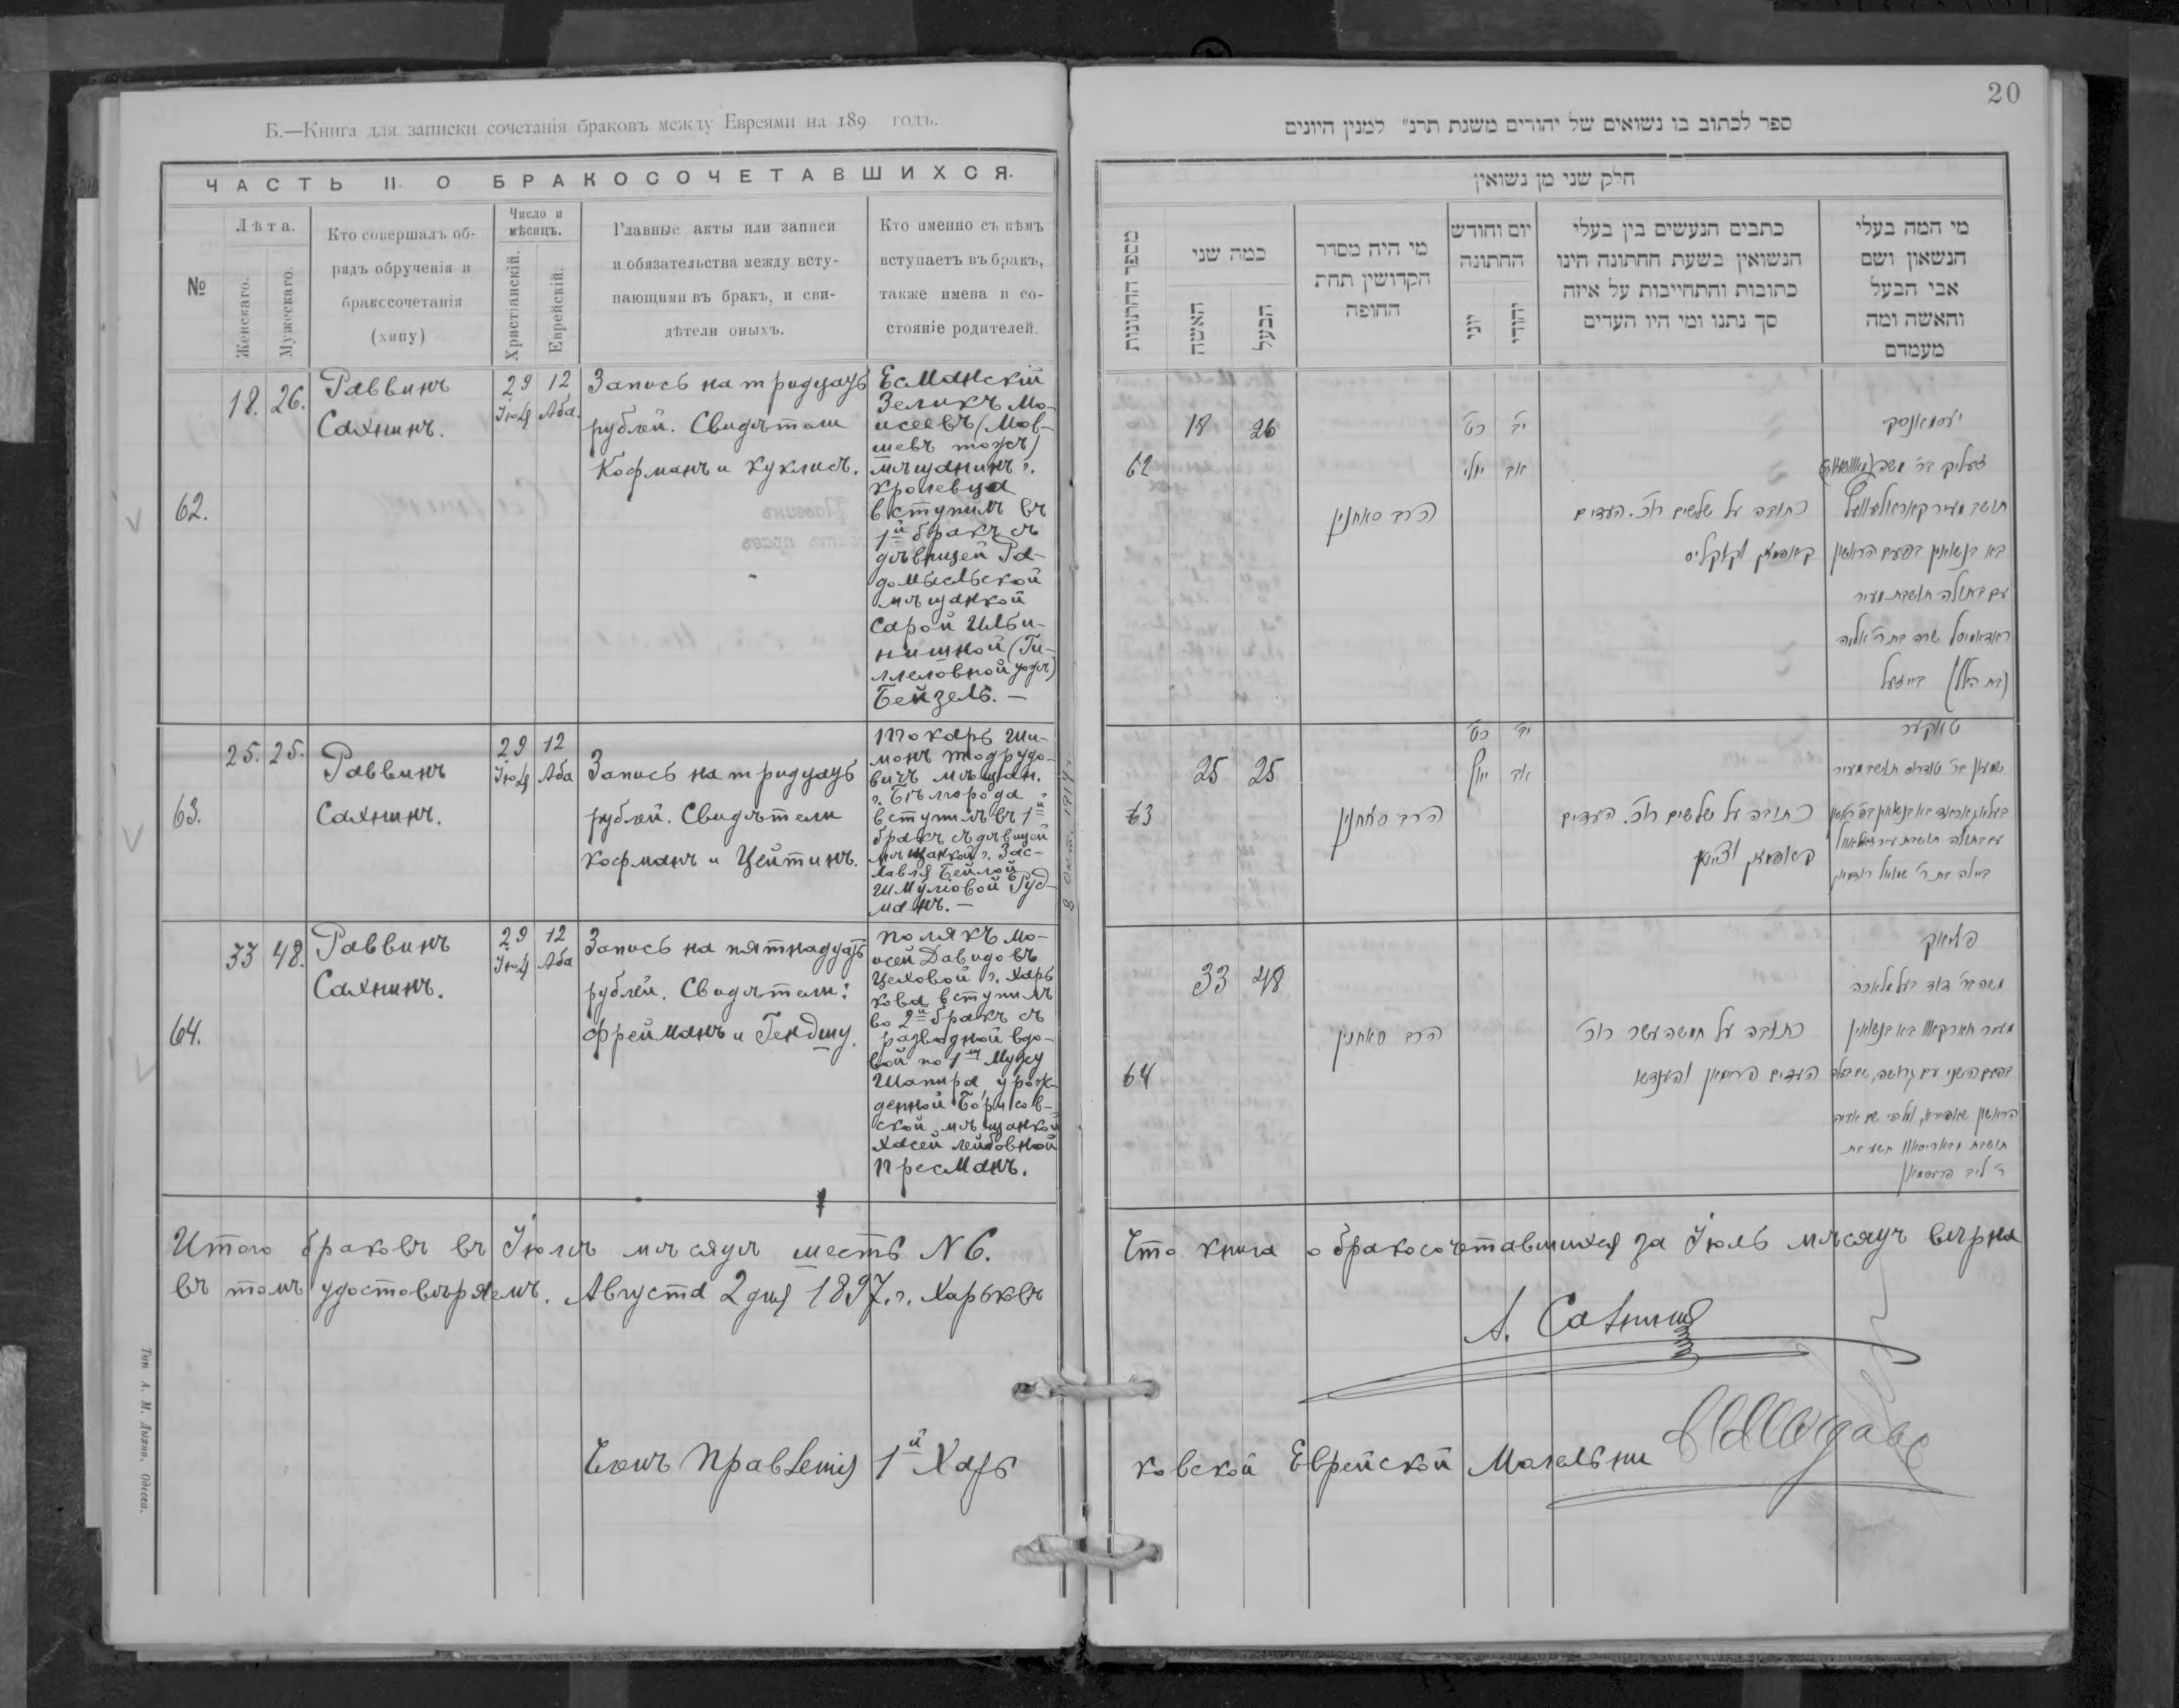 Б.—Книга для записки сочетанія браковъ между Евреями на 189 годъ.
ЧАСТЬ II. О БРАКОСОЧЕТАВШИХСЯ.
№
Лѣта.
Женскаго.
Мужескаго.
Кто совершалъ об-
рядъ обрученія и
бракосочетанія
(хипу)
Число и
мѣсяцъ.
Христіанскій.
Еврейскій.
Главные акты или записи
и обязательства между всту-
пающими въ бракъ, и сви-
дѣтели оныхъ.
Кто именно съ кѣмъ
вступаетъ въ бракъ,
также имена и со-
стояніе родителей.
62.
18. 26.
Раввинъ
Сахнинъ.
29 12
Іюля Аба.
Запись на тридцать
рублей. Свидѣтели
Кофманъ и Куклисъ.
Есманскій
Зеликъ Мо-
исеевъ (Мов-
шевъ тожъ)
мѣщанинъ г.
Кролевца
вступилъ въ
1й бракъ съ
дѣвицей Ра-
домысльской
мѣщанкой
Сарой Ильи-
нишной (Ги-
ллеловной тожъ)
Бейзель. —
63.
25. 25.
Раввинъ
Сахнинъ.
29 12
Іюля Аба
Запись на тридцать
рублей. Свидѣтели
Кофманъ и Цейтинъ.
Токарь Ши-
монъ Тодрудо-
вичъ мѣщан.
г. Бѣлгорода
вступилъ въ 1й
бракъ съ дѣвицей
мѣщанкой г. Зас-
лавля Бейлой
Шмулiовой Руд-
манъ. —
64.
33 48.
Раввинъ
Сахнинъ.
29 12
Іюля Аба
Запись на пятнадцать
рублей. Свидѣтели:
Фрейманъ и Гендшу.
Полякъ Мо-
исей Давидовъ
Цеховой г. Харь
кова вступилъ
во 2й бракъ съ
разводной вдо-
вой по 1му мужу
Шапира, урож-
денной Борисов-
ской мѣщанкой
Хасей Лейбовной
Пресманъ.
Итого браковъ въ Іюлѣ мѣсяцѣ шесть N 6.
въ томъ удостовѣряемъ. Августа 2 дня 1897. г. Харьковъ
Членъ Правленія 1й Харь
Тип А. М. Дыхно, Одесса.
20
ספר לכתוב בו נשואים של יהודים משנת תרנ״ למנין היונים
חלק שני מן נשואין
מספר החתונות
כמה שני
האשה
הבעל
מי היה מסדר
הקדושין תחת
החופה
יום וחודש
החתונה
יוני
יהודי
כתבים הנעשים בין בעלי
הנשואין בשעת החתונה הינו
כתובות והתחייבות על איזה
סך נתנו ומי היו העדים
מי המה בעלי
הנשאון ושם
אבי הבעל
והאשה ומה
מעמדם
62
18 26
הרב סאחנין
כט יב
יולי אב
כתובה על שלשים רוכ. העדים
קאפמאן וקוקליס
יעסמאנסקי
זעליק בר משה
בא בנשואין בפעם הראשון
עם בתולה תושבת מעיר
ראדאמיסל שרה בת ר׳ אליה
(בת הלל) בייזעל
63
25 25
הרב סאחנין
כט יב
יולי אב
כתובה על שלשים רוכ. העדים
קאפמאן וצייטין
טאקער
שמעון בר טודרוס תושב מעיר
ביילה בת ר׳ שמואל רודמאן
64
33 48
הרב סאחנין
כתובה על חמשה עשר רוכ
העדים פריימאן והענדשו
פאליאק
משה בר דוד בעל מלאכה
מעיר חארקאוו בא בנשואין
ר׳ ליב פרעסמאן
Что книга о бракосочетавшихся за Іюль мѣсяцъ вѣрна
А. Сахнинъ
ковской Еврейской Молельни